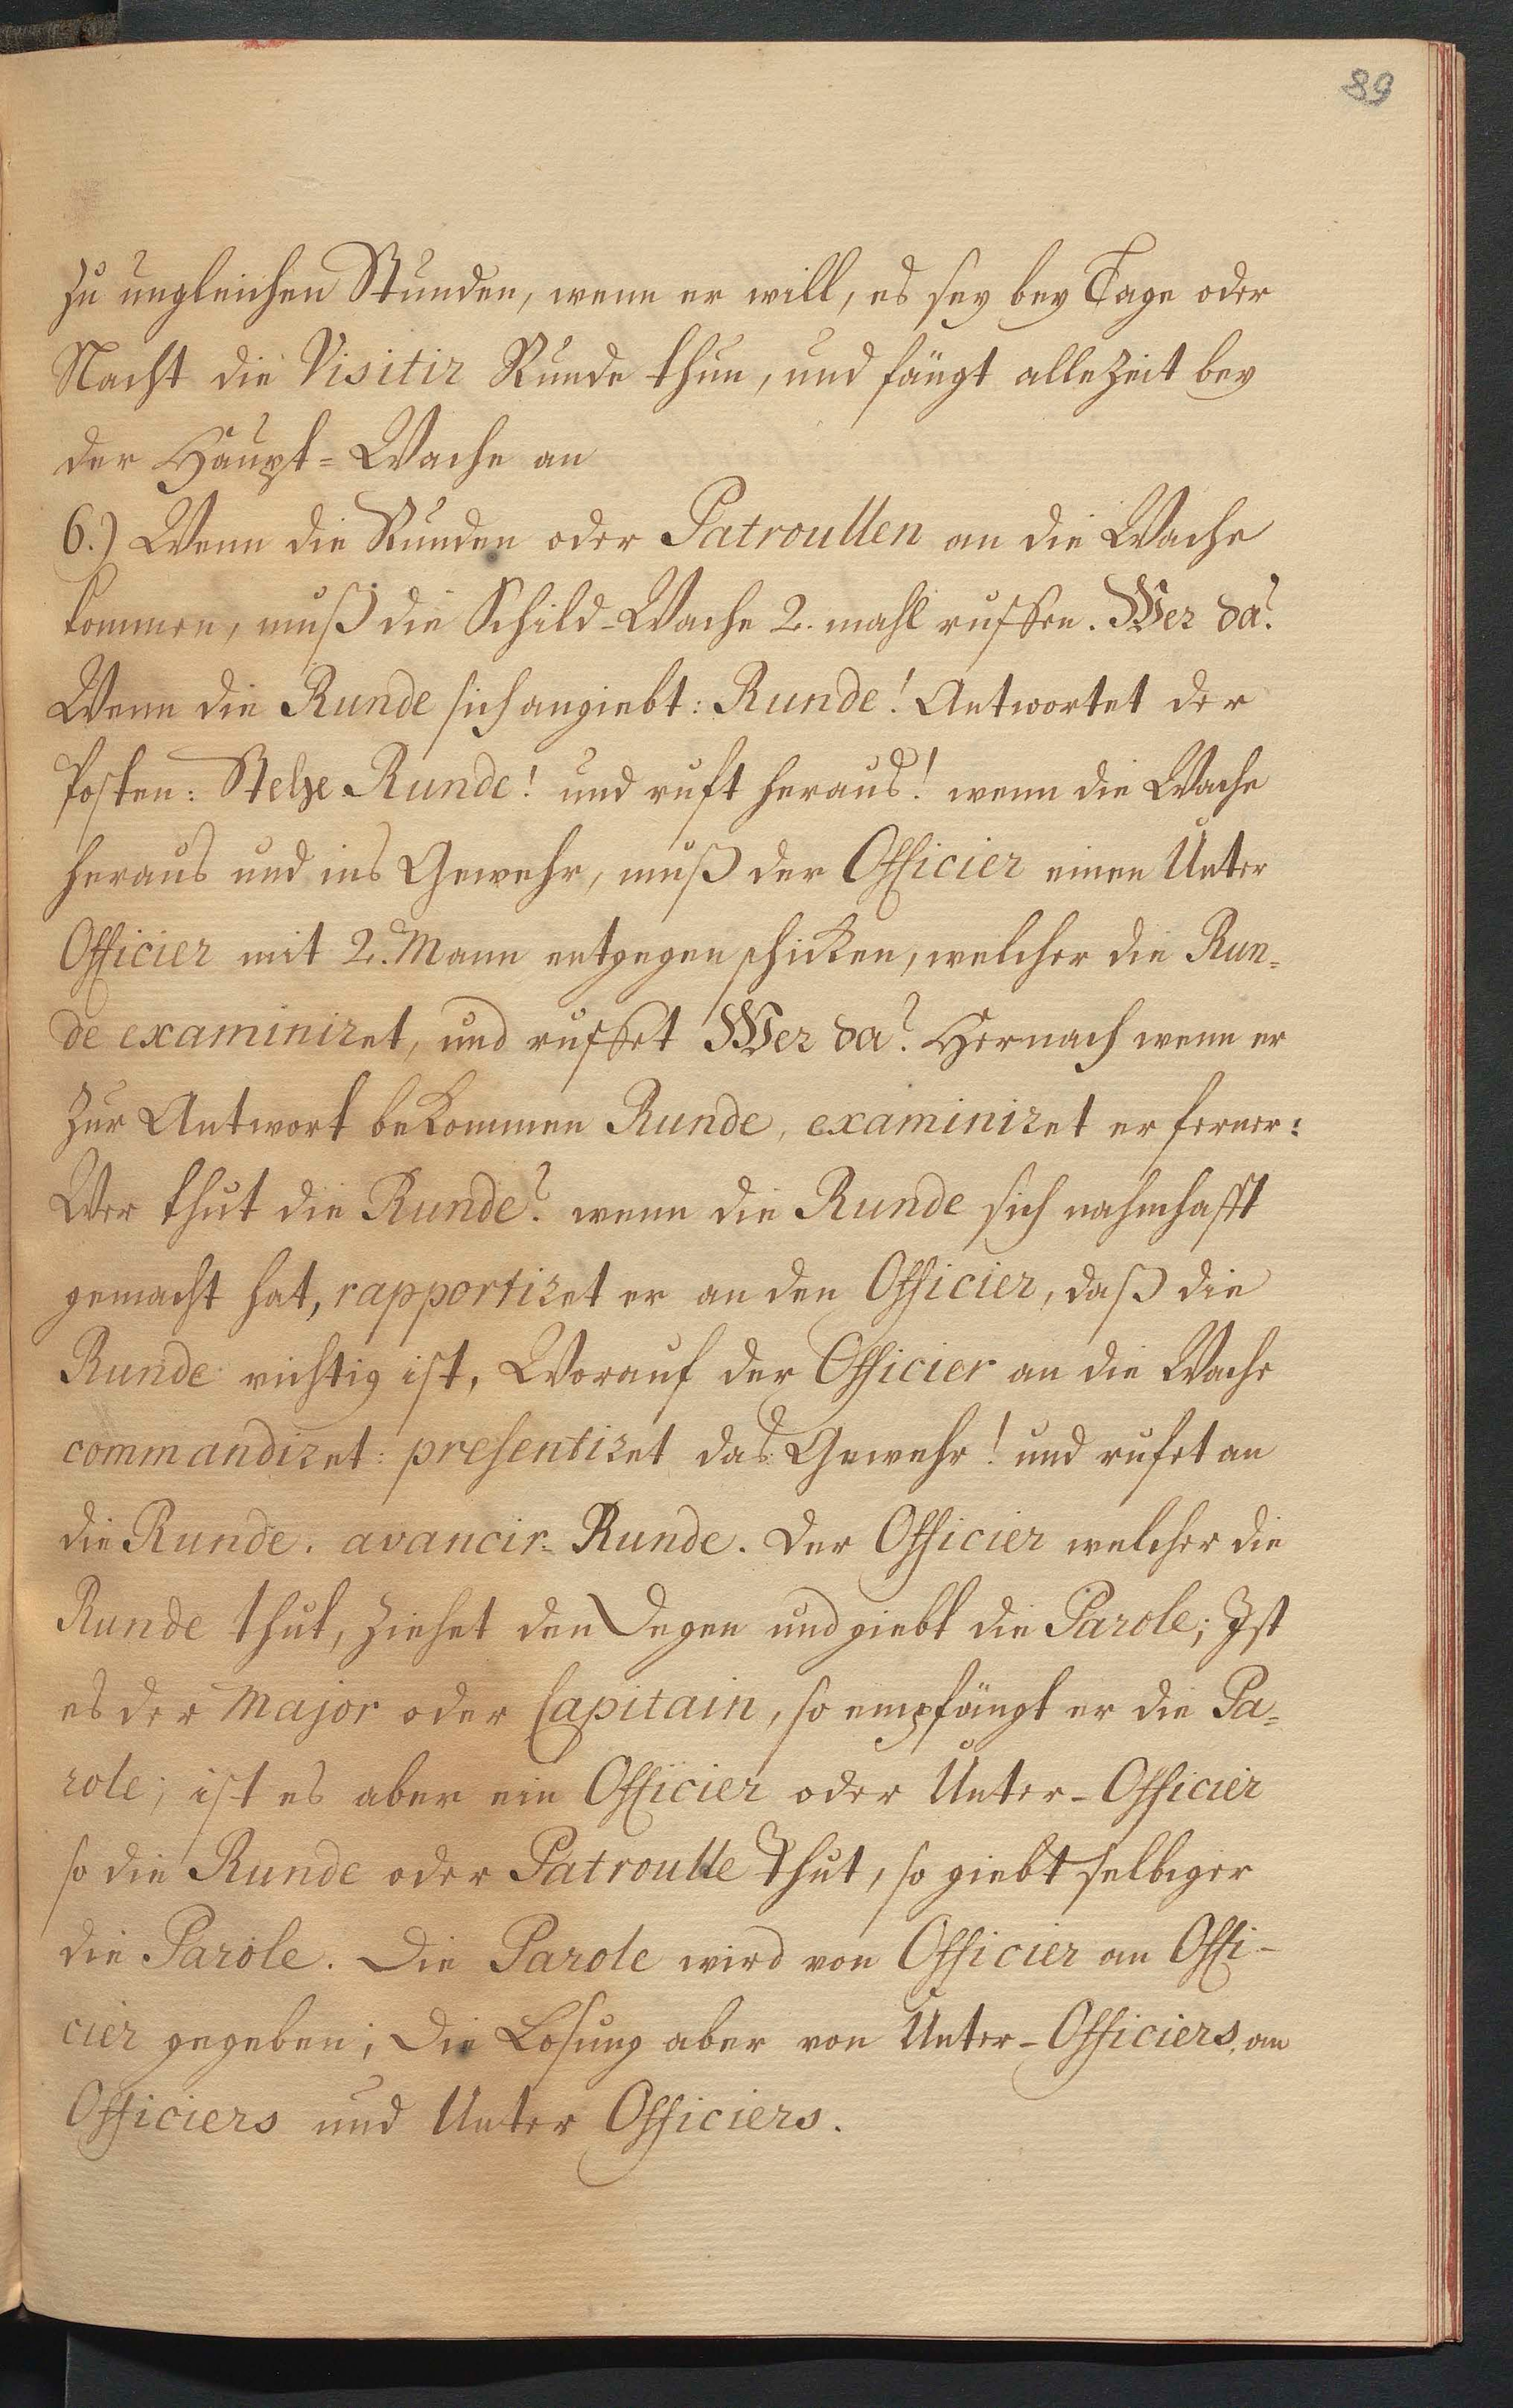 89
zu ungleichen Stunden, wenn er will, es sey bey Tage oder
Nacht die Visitir Runde thun, und fängt allezeit bey
der Haupt=Wache an
6.) Wenn die Runden oder Patroullen an die Wache
kommen, muß die Schild-Wache 2. mahl ruffen. Wer da?
Wenn die Runde sich angiebt: Runde! Antwortet der
Posten: Stehe Runde! und ruft heraus! wenn die Wache
heraus und ins Gewehr, muß der Officier einen Unter
Officier mit 2. Mann entgegen schicken, welcher die Run=
de examiniret, und ruffet Wer da? Hernach wenn er
zur Antwort bekommen Runde, examiniret er ferner:
Wer thut die Runde? wenn die Runde sich nahmhafft
gemacht hat, rapportiret er an den Officier, daß die
Runde richtig ist, Worauf der Officier an die Wache
commandiret: presentiret das Gewehr! und rufet an
die Runde. avancir Runde. Der Officier welcher die
Runde thut, ziehet den Degen und giebt die Parole; Ist
es der Major oder Capitain, so empfängt er die Pa=
role; ist es aber ein Officier oder Unter-Officier
so die Runde oder Patroulle thut, so giebt selbiger
die Parole. Die Parole wird von Officier an Offi-
cier gegeben; Die Losung aber von Unter-Officiers an
Officiers und Unter Officiers.